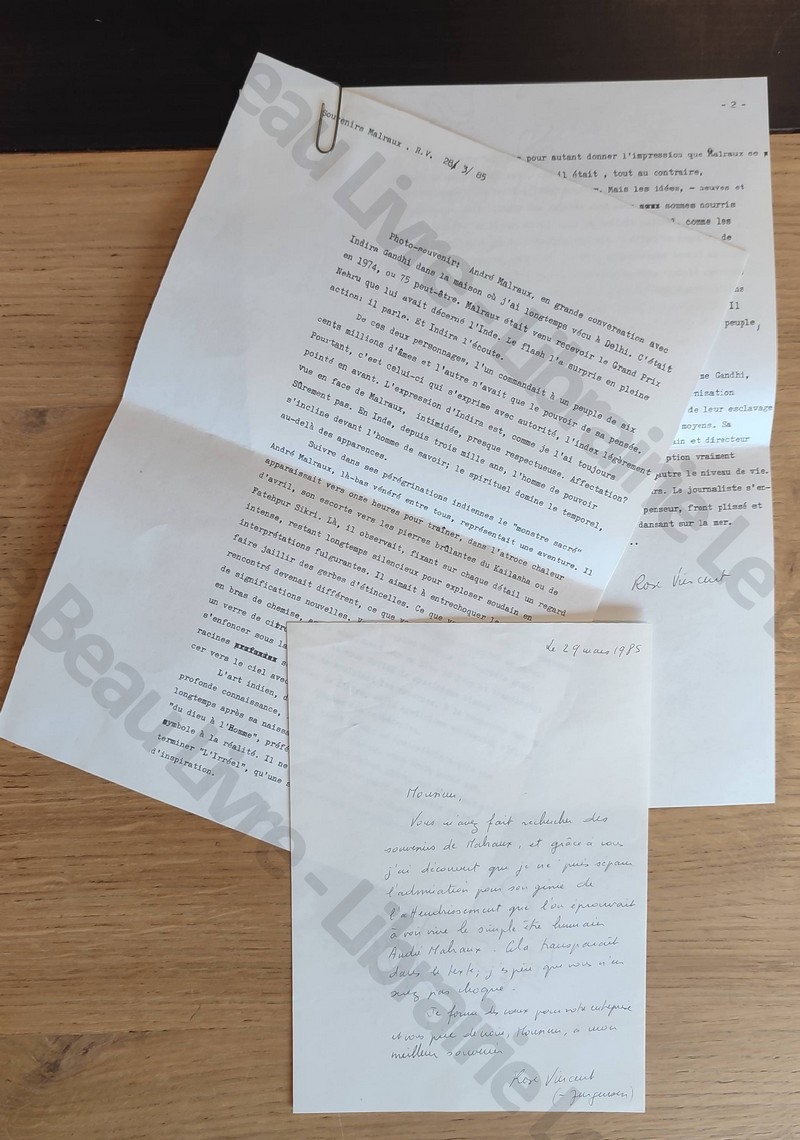 Souvenirs Malraux . R.V. 28/ 3/ 85
Photo-souvenir: André Malraux, en grande conversation avec
Indira Gandhi dans la maison où j'ai longtemps vécu à Delhi. C'était
en 1974, ou 75 peut-être. Malraux était venu recevoir le Grand Prix
Nehru que lui avait décerné l'Inde. Le flash l'a surpris en pleine
action: il parle. Et Indira l'écoute.
De ces deux personnages, l'un commandait à un peuple de six
cents millions d'âmes et l'autre n'avait que le pouvoir de sa pensée.
Pourtant, c'est celui-ci qui s'exprime avec autorité, l'index légèrement
pointé en avant. L'expression d'Indira est, comme je l'ai toujours
vue en face de Malraux, intimidée, presque respectueuse. Affectation?
Sûrement pas. En Inde, depuis trois mille ans, l'homme de pouvoir
s'incline devant l'homme de savoir; le spirituel domine le temporel,
au-delà des apparences.
Suivre dans ses pérégrinations indiennes le "monstre sacré"
André Malraux, là-bas vénéré entre tous, représentait une aventure. Il
apparaissait vers onze heures pour traîner, dans l'atroce chaleur
d'avril, son escorte vers les pierres brûlantes du Kailasha ou de
Fatehpur Sikri. Là, il observait, fixant sur chaque détail un regard
intense, restant longtemps silencieux pour exploser soudain en
interprétations fulgurantes. Il aimait à entrechoquer
faire jaillir des gerbes d'étincelles. Ce que
rencontré devenait différent, ce que
de significations nouvelles.
en bras de chemise,
un verre de
s'enfoncer sous la
racines
cer vers le ciel avec
L'art indien,
profonde connaissance,
longtemps après sa
"du dieu à l'Homme",
symbole à la réalité. Il ne
terminer "L'Irréel", qu'une
d'inspiration.
- 2 -
pour autant donner l'impression que Malraux se
il était , tout au contraire,
Mais les idées, - neuves et
sommes nourris
comme les
de
Il
peuple,
Gandhi,
de leur esclavage
moyens. Sa
et directeur
vraiment
autre le niveau de vie.
Le journaliste s'en-
penseur, front plissé et
dansant sur la mer.
Rose Vincent
Le 29 mars 1985
Monsieur,
Vous m'avez fait rechercher des
souvenirs de Malraux, et grâce à vous
j'ai découvert que je ne puis séparer
l'admiration pour son génie de
l'attendrissement que l'on éprouvait
à voir vivre le simple être humain
André Malraux. Cela transparaît
dans le texte; j'espère que vous n'en
serez pas choqué.
Je forme des voeux pour votre entreprise
et vous prie de croire, Monsieur, à mon
meilleur souvenir
Rose Vincent
(- Jurgensen)
Beau Livre - Librairie
Beau Livre - Librairie